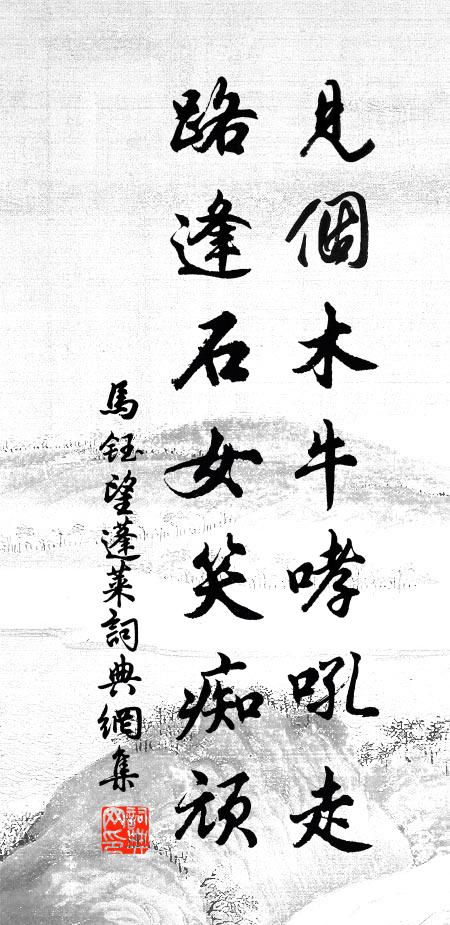 見個木牛哮吼走
路逢石女笑痴頑
馬鈺望蓬萊詞典網集